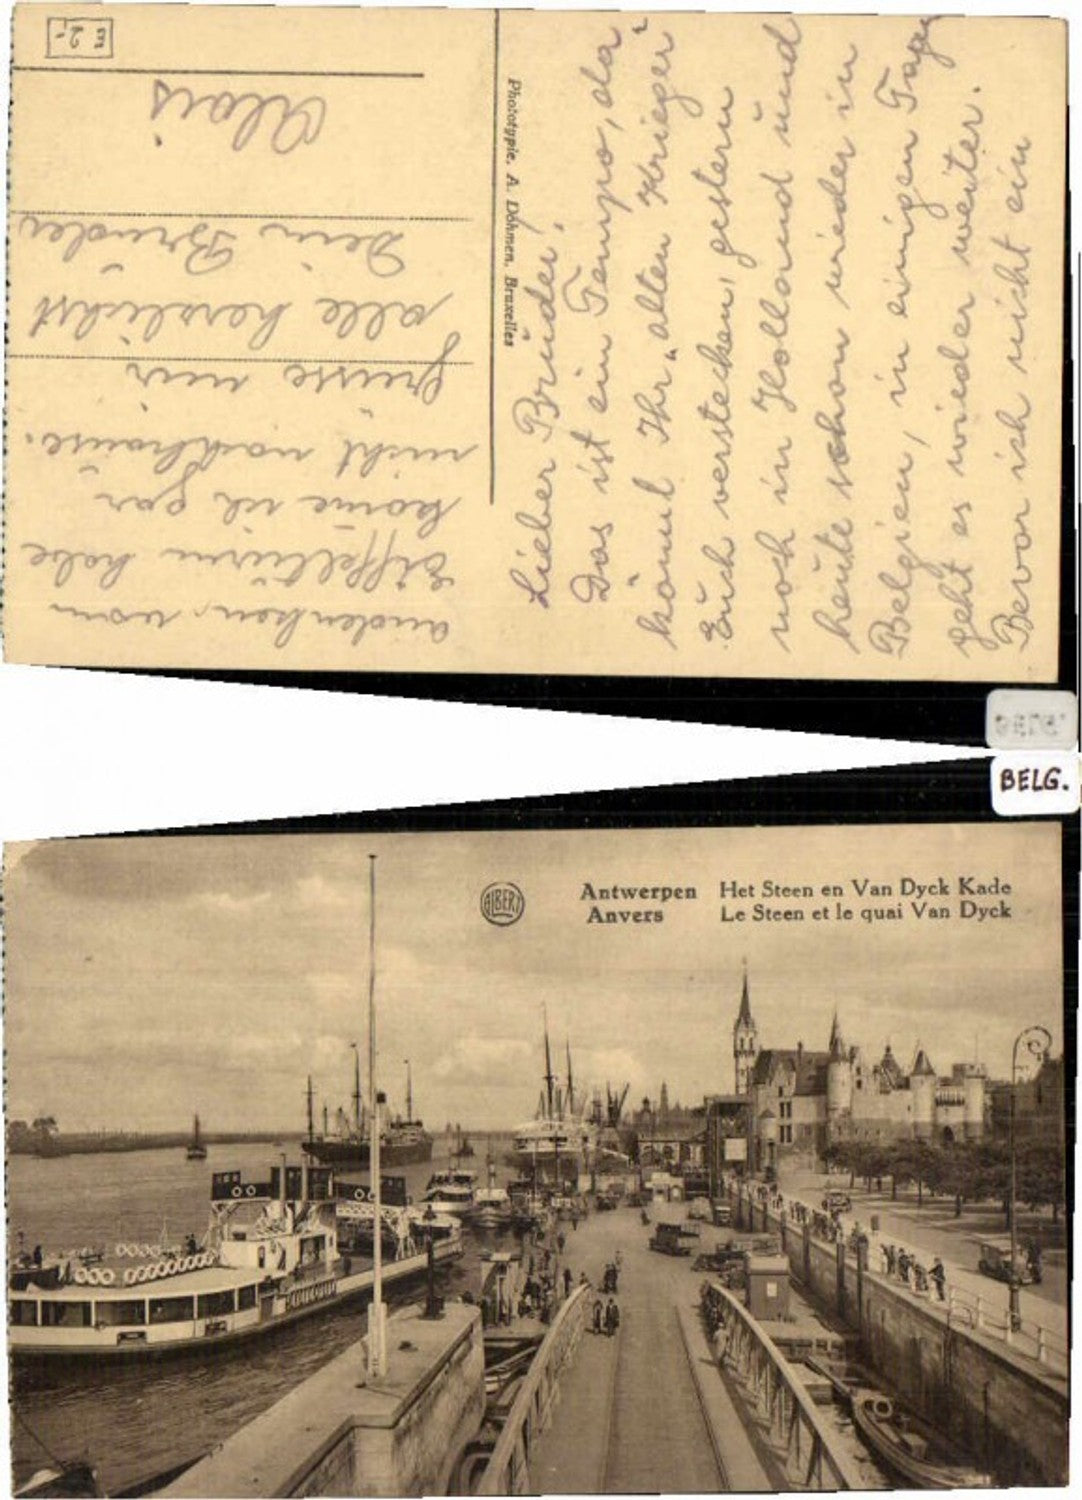 Lieber Bruder!
Das ist ein Tempo, da
könnt Ihr „alten Krieger“
Euch verstecken, gestern
noch in Holland und
heute schon wieder in
Belgien, in einigen Tagen
geht es wieder weiter.
Bevor ich nicht ein
andenken, vom
Eiffelturm habe
kome ich gar
nicht nachhause.
Grüsse mir
alle herzlichst
Dein Bruder
Alois
Phototypie. A. Dohmen. Bruxelles
m 2.-
BELG.
BELG.
ALBERT
Antwerpen Het Steen en Van Dyck Kade
Anvers Le Steen et le quai Van Dyck